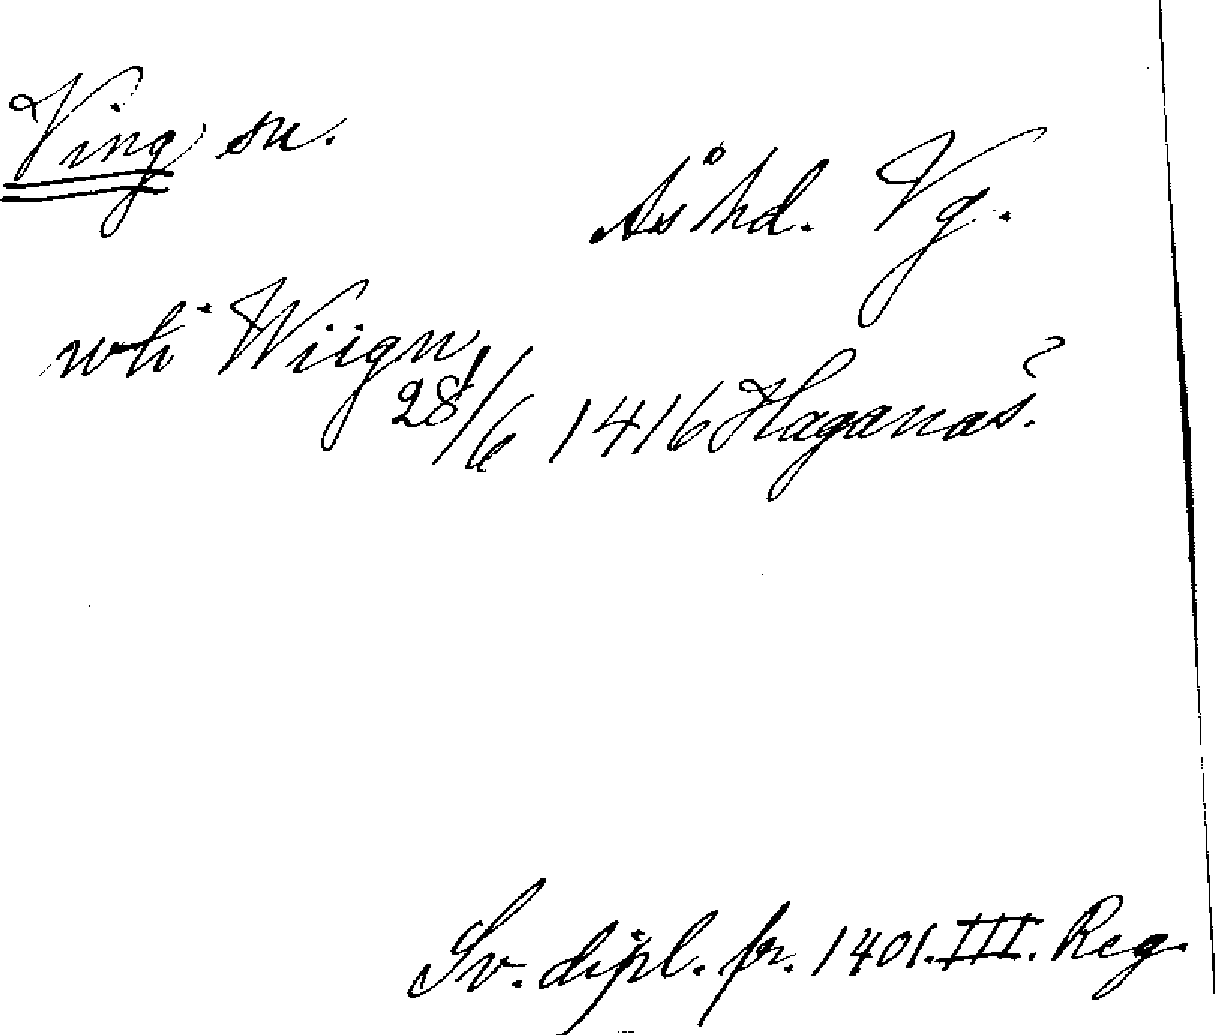 Ving sn.
Ås hd. Vg.
uti Wiign
28/6 1416 Haganäs?
Sv. dipl. fr. 1401. III. Reg.